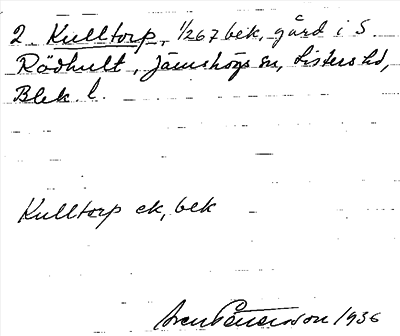 2 Kulltorp, 1/267 bek, gård i S.
Rödhult, Jämshögs sn, Listers hd,
Blek. l.
Kulltorp ek, bek
1936